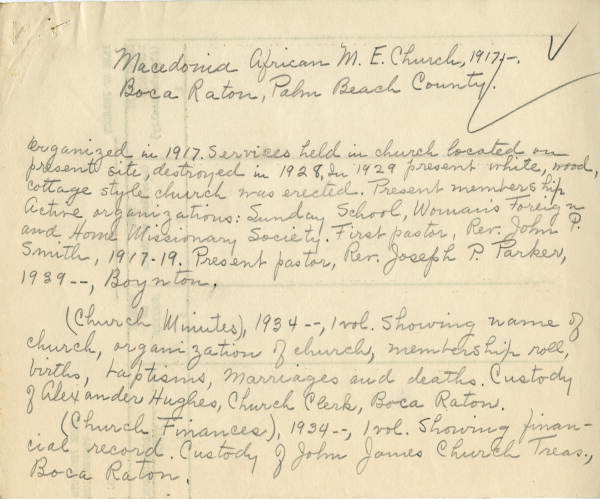 Macedonia African M. E. Church, 1917--.
Boca Raton, Palm Beach County.
Organized in 1917. Services held in church located on
present site, destroyed in 1928, In 1929 present white, wood,
cottage style church was erected. Present membership
Active organizations: Sunday School, Woman's Foreign
and Home Missionary Society. First pastor, Rev. John P.
Smith, 1917-19. Present pastor, Rev. Joseph P. Parker,
1939--, Boynton.
(Church Minutes), 1934--, 1 vol. Showing name of
church, organization of church, membership roll,
births, baptisms, marriages and deaths. Custody
of Alexander Hughes, Church Clerk, Boca Raton.
(Church Finances), 1934--, 1 vol. Showing finan-
cial record. Custody of John James Church Treas.,
Boca Raton.